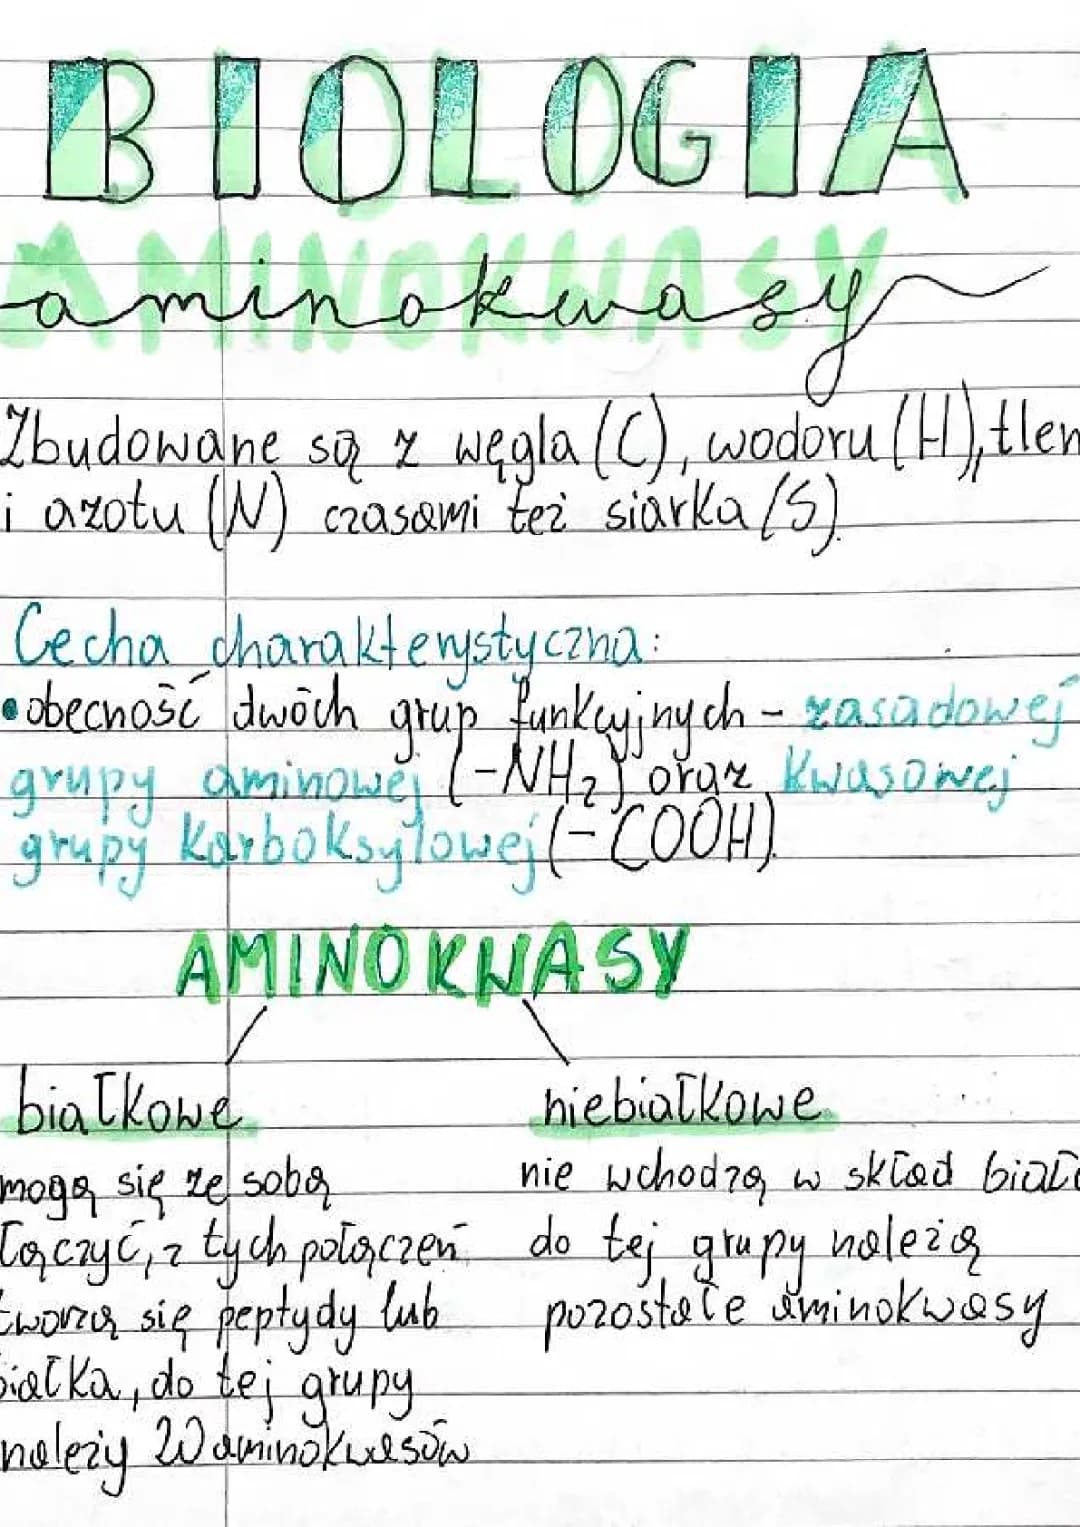 BIOLOGIA
AMINOKWASY
aminokwasy
Zbudowane są z węgla (C), wodoru (H), tlen
i azotu (N) czasami też siarka (S).
Cecha charakterystyczna:
• obecność dwóch grup funkcyjnych - zasadowej
grupy aminowej (-NH₂) oraz kwasowej
grupy karboksylowej (-COOH).
AMINOKWASY
białkowe
niebiałkowe
mogą się ze sobą
łączyć, z tych połączeń
tworzą się peptydy lub
białka, do tej grupy
należy 20 aminokwasów
nie wchodzą w skład biał
do tej grupy należą
pozostałe aminokwasy